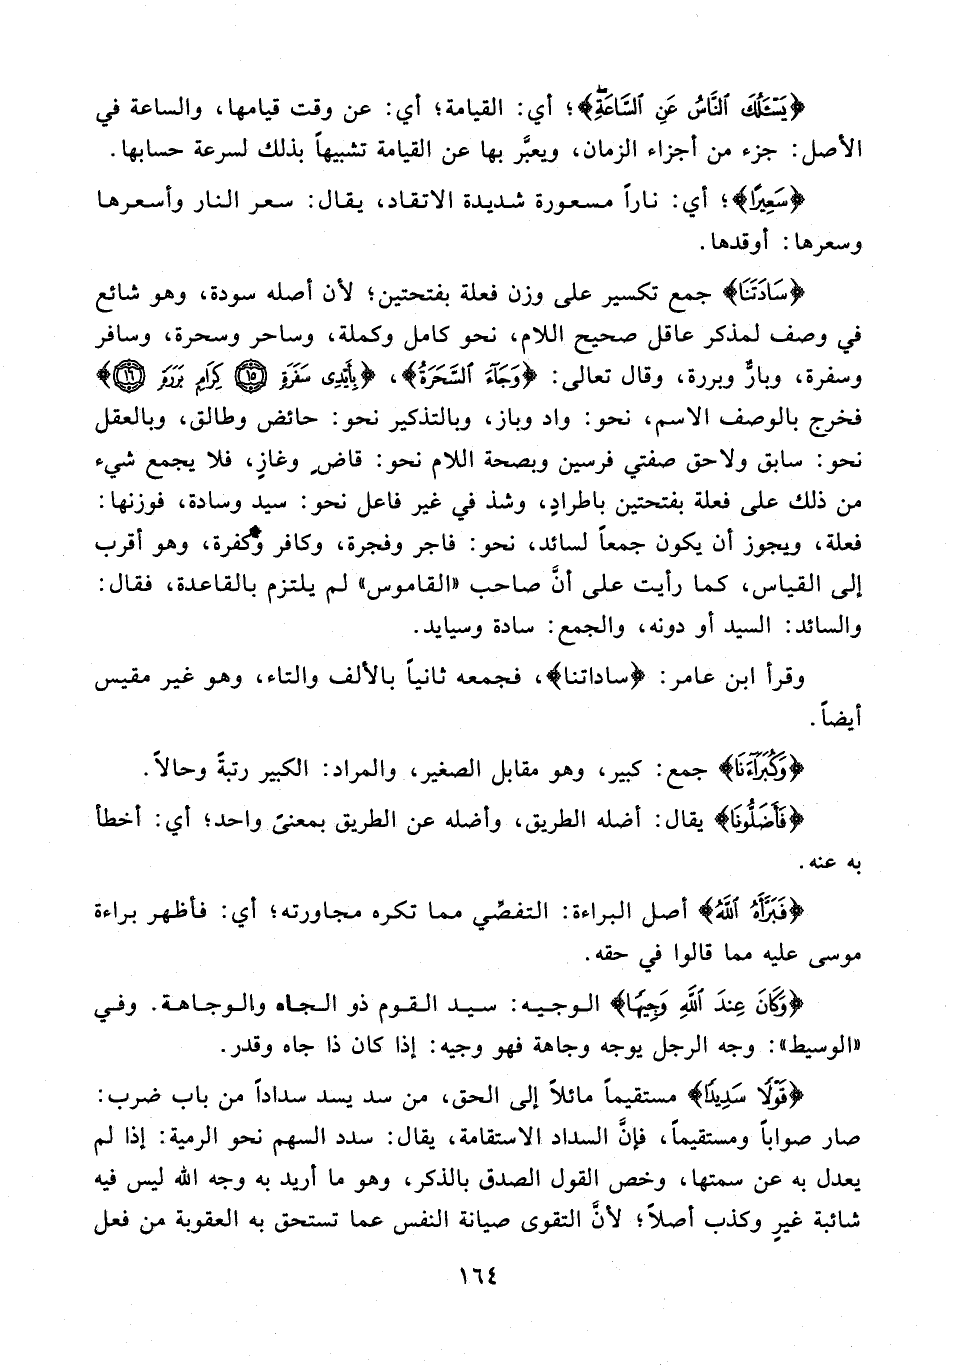 ﴿يَسْـَٔلُكَ ٱلنَّاسُ عَنِ ٱلسَّاعَةِۖ﴾؛ أي: القيامة؛ أي: عن وقت قيامها، والساعة في
الأصل: جزء من أجزاء الزمان، ويعبَّر بها عن القيامة تشبيهاً بذلك لسرعة حسابها.
﴿سَعِيرًا﴾؛ أي: ناراً مسعورة شديدة الاتقاد، يقال: سعر النار وأسعرها
وسعرها: أوقدها.
﴿سَادَتَنَا﴾ جمع تكسير على وزن فعلة بفتحتين؛ لأن أصله سودة، وهو شائع
في وصف لمذكر عاقل صحيح اللام، نحو كامل وكملة، وساحر وسحرة، وسافر
وسفرة، وبارٌّ وبررة، وقال تعالى: ﴿وَجَآءَ ٱلسَّحَرَةُ﴾، ﴿بِأَيْدِى سَفَرَةٍ ۝١٥ كِرَامٍ بَرَرَةٍ ۝١٦﴾
فخرج بالوصف الاسم، نحو: واد وباز، وبالتذكير نحو: حائض وطالق، وبالعقل
نحو: سابق ولاحق صفتي فرسين وبصحة اللام نحو: قاضٍ وغازٍ، فلا يجمع شيء
من ذلك على فعلة بفتحتين باطرادٍ، وشذ في غير فاعل نحو: سيد وسادة، فوزنها:
فعلة، ويجوز أن يكون جمعاً لسائد، نحو: فاجر وفجرة، وكافر وكفرة، وهو أقرب
إلى القياس، كما رأيت على أنَّ صاحب «القاموس» لم يلتزم بالقاعدة، فقال:
والسائد: السيد أو دونه، والجمع: سادة وسيايد.
وقرأ ابن عامر: ﴿ساداتنا﴾، فجمعه ثانياً بالألف والتاء، وهو غير مقيس
أيضاً.
﴿وَكُبَرَآءَنَا﴾ جمع: كبير، وهو مقابل الصغير، والمراد: الكبير رتبةً وحالاً.
﴿فَأَضَلُّونَا﴾ يقال: أضله الطريق، وأضله عن الطريق بمعنىً واحد؛ أي: أخطأ
به عنه.
﴿فَبَرَّأَهُ ٱللَّهُ﴾ أصل البراءة: التفصِّي مما تكره مجاورته؛ أي: فأظهر براءة
موسى عليه مما قالوا في حقه.
﴿وَكَانَ عِندَ ٱللَّهِ وَجِيهًا﴾ الوجيه: سيد القوم ذو الجاه والوجاهة. وفي
«الوسيط»: وجه الرجل يوجه وجاهة فهو وجيه: إذا كان ذا جاه وقدر.
﴿قَوْلًا سَدِيدًا﴾ مستقيماً مائلاً إلى الحق، من سد يسد سداداً من باب ضرب:
صار صواباً ومستقيماً، فإنَّ السداد الاستقامة، يقال: سدد السهم نحو الرمية: إذا لم
يعدل به عن سمتها، وخص القول الصدق بالذكر، وهو ما أريد به وجه الله ليس فيه
شائبة غيرٍ وكذب أصلاً؛ لأنَّ التقوى صيانة النفس عما تستحق به العقوبة من فعل
١٦٤